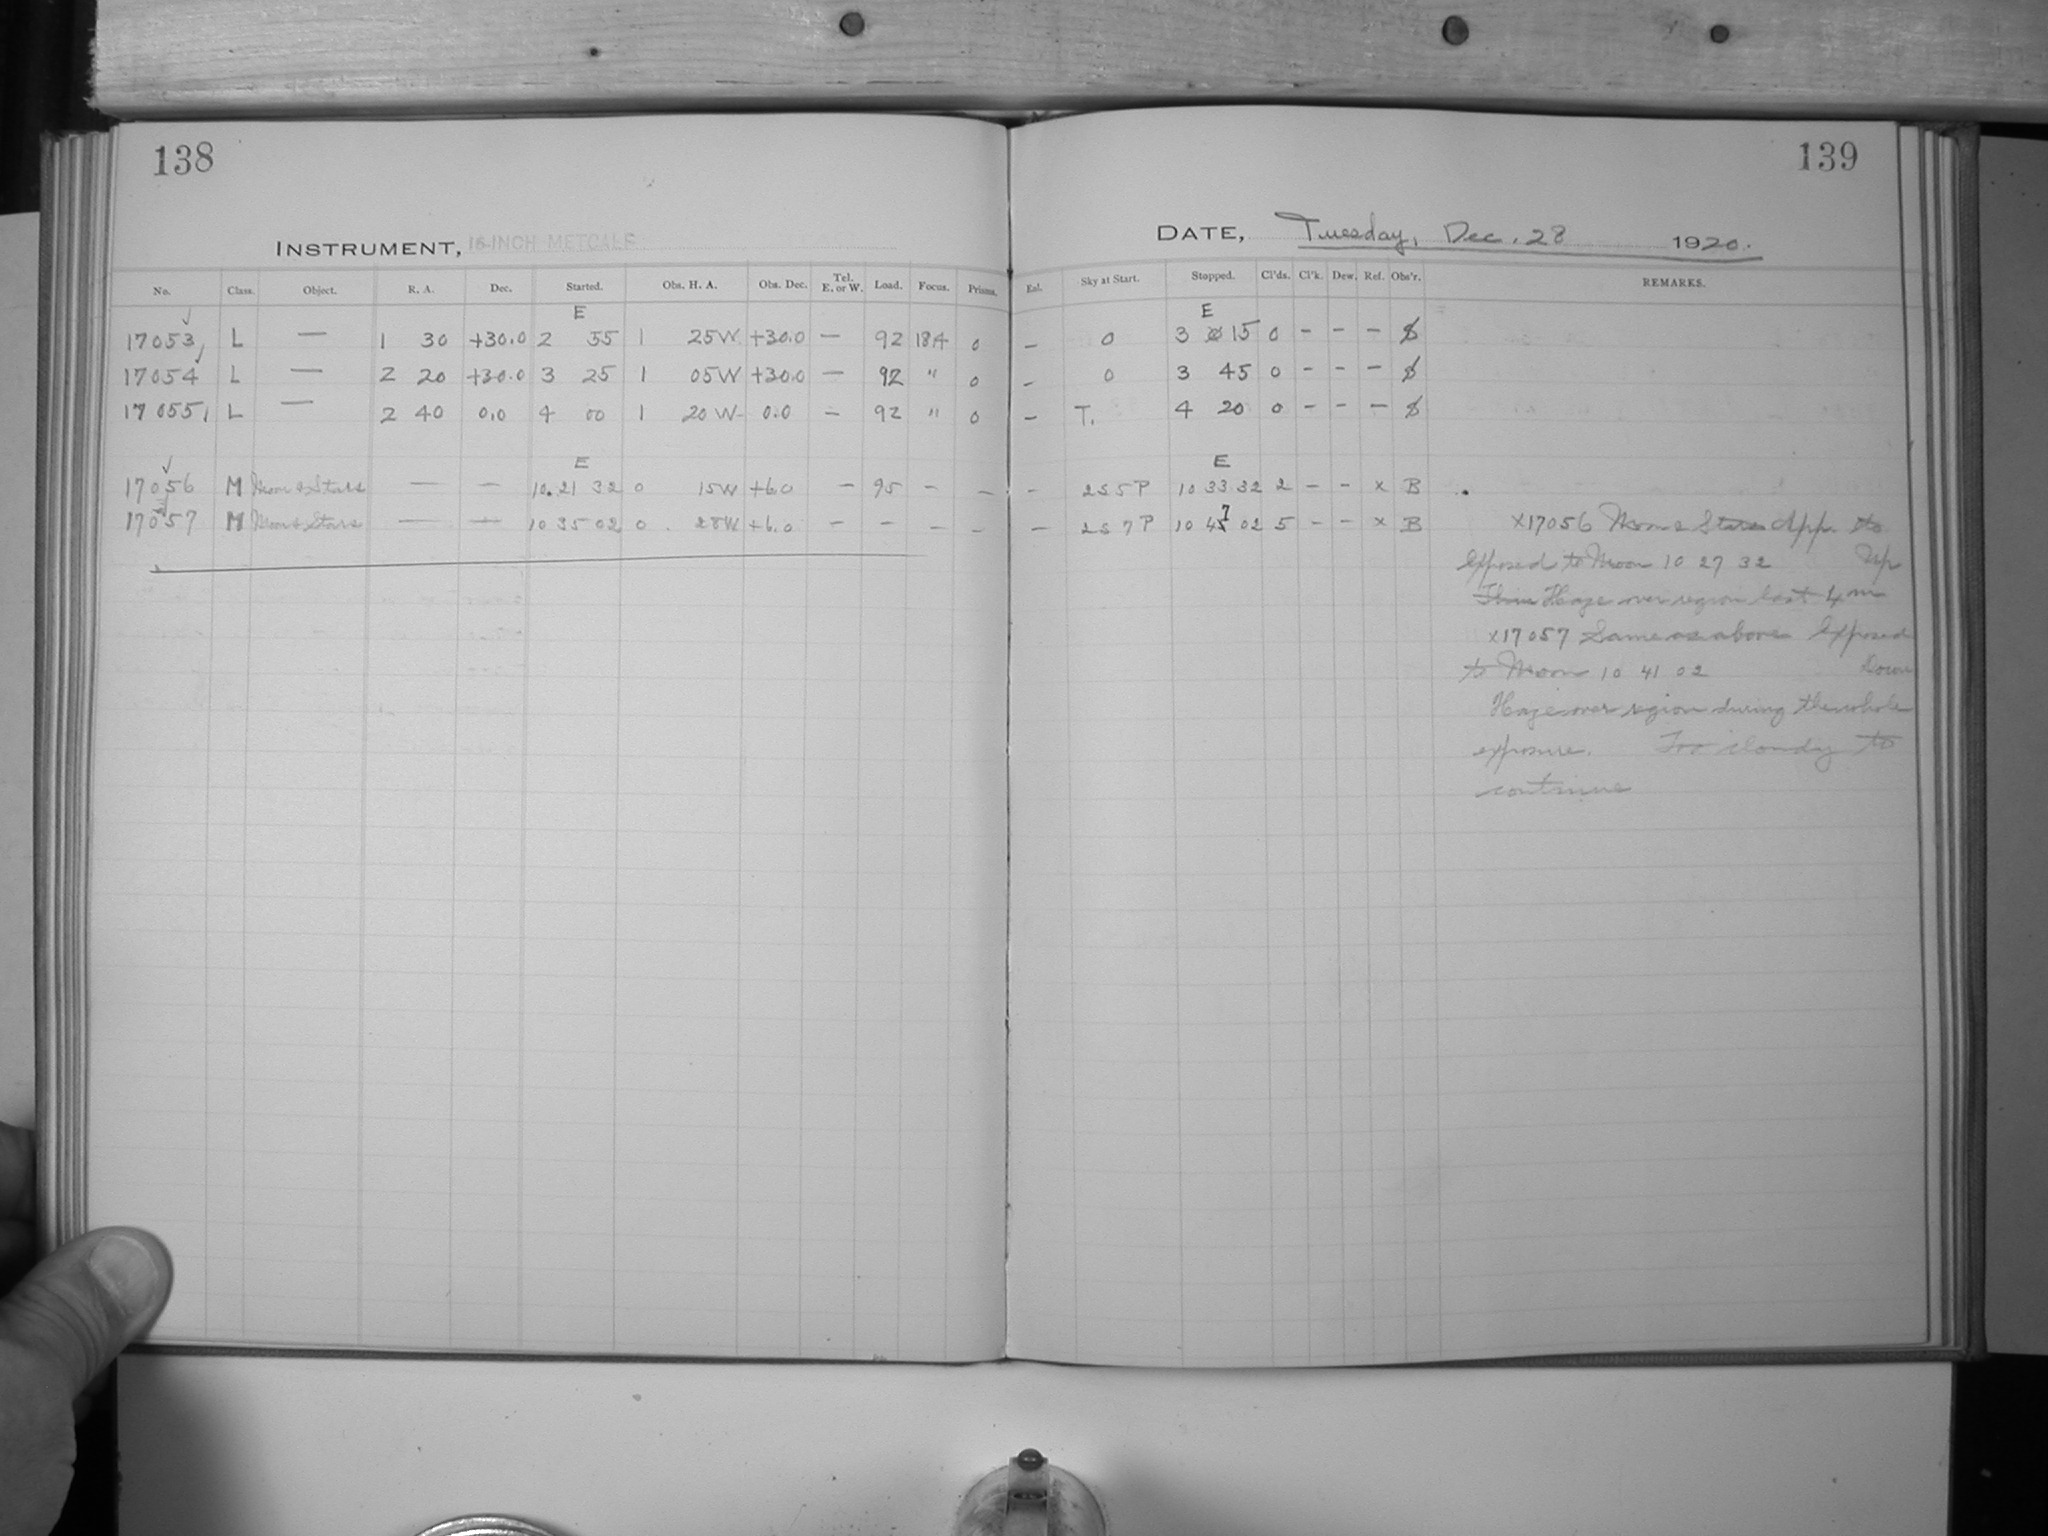 138
139
INSTRUMENT, 16-INCH METCALF
DATE, Tuesday, Dec. 28 1920.
No. Class. Object. R. A. Dec. Started. Obs. H. A. Obs. Dec. Tel. E. or W. Load. Focus. Prisms. Eal. Sky at Start. Stopped. Cl'ds. Cl'k. Dew. Ref. Obs'r. REMARKS.
E E
17053 L — 1 30 +30.0 2 55 1 25W +30.0 — 92 18.4 0 - 0 3 15 0 - - -
17054 L — 2 20 +30.0 3 25 1 05W +30.0 — 92 " 0 - 0 3 45 0 - - -
17055 L — 2 40 0.0 4 00 1 20W 0.0 — 92 " 0 - T. 4 20 0 - - -
E E
17056 M Moon & Stars — — 10 21 32 0 15W +6.0 - 95 - - - 2S5P 10 33 32 2 - - x B
17057 M Moon & Stars — — 10 35 02 0 28W +6.0 - - - - - 2S7P 10 47 02 5 - - x B
x17056 Moon & Stars App to
Exposed to Moon 10 27 32 Up
Haze over region last 4m
x17057 Same as above Exposed
to Moon 10 41 02 Down
Haze over region during the whole
exposure. Too cloudy to
continue